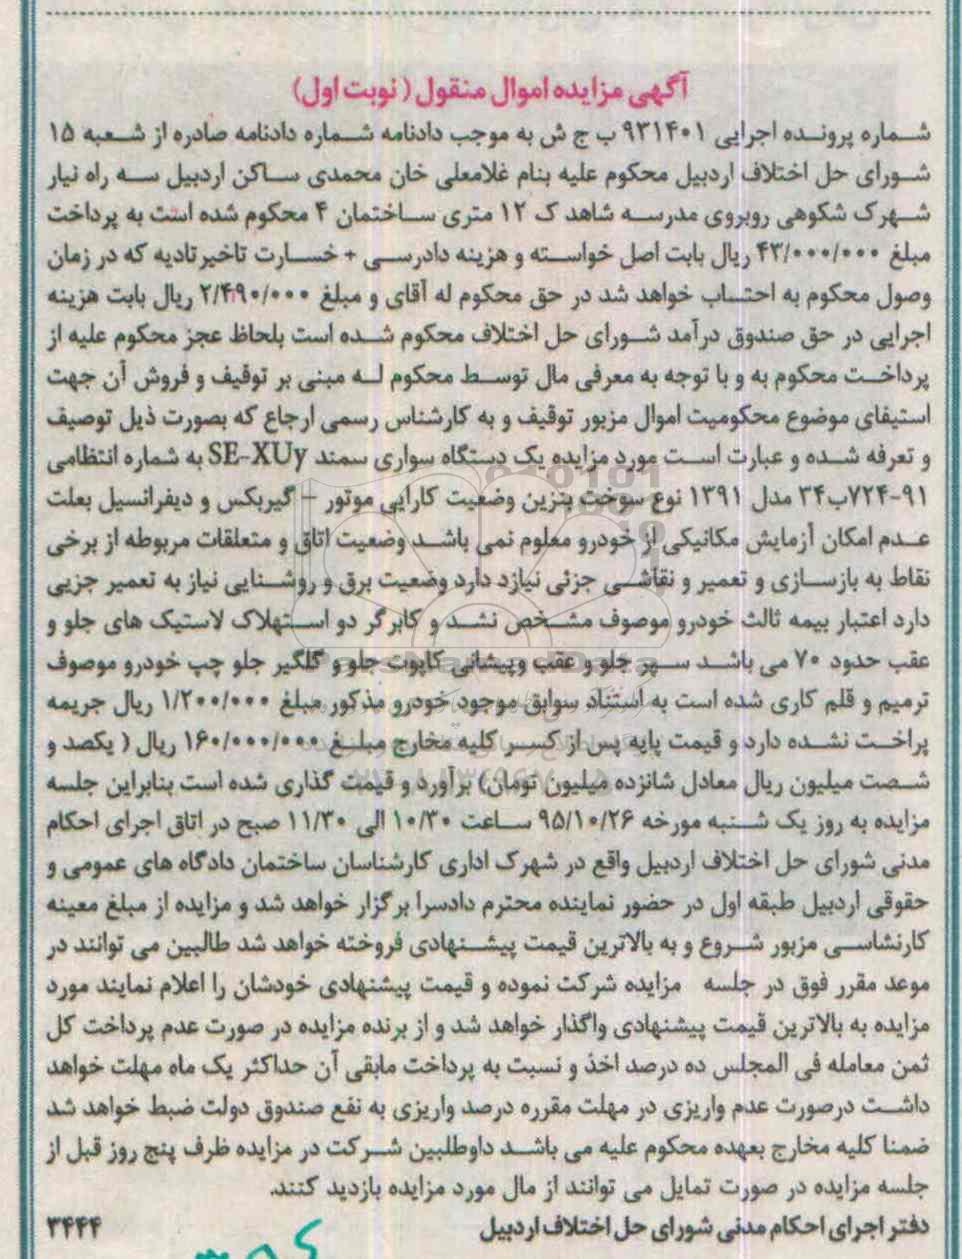 آگهی مزایده اموال منقول ( نوبت اول)
شماره پرونده اجرایی ۹۳۱۴۰۱ ب ج ش به موجب دادنامه شماره دادنامه صادره از شعبه ۱۵
شورای حل اختلاف اردبیل محکوم علیه بنام غلامعلی خان محمدی ساکن اردبیل سه راه نیار
شهرک شکوهی روبروی مدرسه شاهد ک ۱۲ متری ساختمان ۴ محکوم شده است به پرداخت
مبلغ ۴۳/۰۰۰/۰۰۰ ریال بابت اصل خواسته و هزینه دادرسی + خسارت تاخیرتادیه که در زمان
وصول محکوم به احتساب خواهد شد در حق محکوم له آقای و مبلغ ۲/۴۹۰/۰۰۰ ریال بابت هزینه
اجرایی در حق صندوق درآمد شورای حل اختلاف محکوم شده است بلحاظ عجز محکوم علیه از
پرداخت محکوم به و با توجه به معرفی مال توسط محکوم له مبنی بر توقیف و فروش آن جهت
استیفای موضوع محکومیت اموال مزبور توقیف و به کارشناس رسمی ارجاع که بصورت ذیل توصیف
و تعرفه شده و عبارت است مورد مزایده یک دستگاه سواری سمند SE-XUy به شماره انتظامی
۹۱-۷۲۴ب۳۴ مدل ۱۳۹۱ نوع سوخت بنزین وضعیت کارایی موتور – گیربکس و دیفرانسیل بعلت
عدم امکان آزمایش مکانیکی از خودرو معلوم نمی باشد وضعیت اتاق و متعلقات مربوطه از برخی
نقاط به بازسازی و تعمیر و نقاشی جزئی نیازد دارد وضعیت برق و روشنایی نیاز به تعمیر جزیی
دارد اعتبار بیمه ثالث خودرو موصوف مشخص نشد و کابرگر دو استهلاک لاستیک های جلو و
عقب حدود ۷۰ می باشد سپر جلو و عقب وپیشانی کاپوت جلو و گلگیر جلو چپ خودرو موصوف
ترمیم و قلم کاری شده است به استناد سوابق موجود خودرو مذکور مبلغ ۱/۲۰۰/۰۰۰ ریال جریمه
پراخت نشده دارد و قیمت پایه پس از کسر کلیه مخارج مبلغ ۱۶۰/۰۰۰/۰۰۰ ریال ( یکصد و
شصت میلیون ریال معادل شانزده میلیون تومان) برآورد و قیمت گذاری شده است بنابراین جلسه
مزایده به روز یک شنبه مورخه ۹۵/۱۰/۲۶ ساعت ۱۰/۳۰ الی ۱۱/۳۰ صبح در اتاق اجرای احکام
مدنی شورای حل اختلاف اردبیل واقع در شهرک اداری کارشناسان ساختمان دادگاه های عمومی و
حقوقی اردبیل طبقه اول در حضور نماینده محترم دادسرا برگزار خواهد شد و مزایده از مبلغ معینه
کارنشاسی مزبور شروع و به بالاترین قیمت پیشنهادی فروخته خواهد شد طالبین می توانند در
موعد مقرر فوق در جلسه مزایده شرکت نموده و قیمت پیشنهادی خودشان را اعلام نمایند مورد
مزایده به بالاترین قیمت پیشنهادی واگذار خواهد شد و از برنده مزایده در صورت عدم پرداخت کل
ثمن معامله فی المجلس ده درصد اخذ و نسبت به پرداخت مابقی آن حداکثر یک ماه مهلت خواهد
داشت درصورت عدم واریزی در مهلت مقرره درصد واریزی به نفع صندوق دولت ضبط خواهد شد
ضمنا کلیه مخارج بعهده محکوم علیه می باشد داوطلبین شرکت در مزایده ظرف پنج روز قبل از
جلسه مزایده در صورت تمایل می توانند از مال مورد مزایده بازدید کنند.
دفتر اجرای احکام مدنی شورای حل اختلاف اردبیل ۳۴۴۴